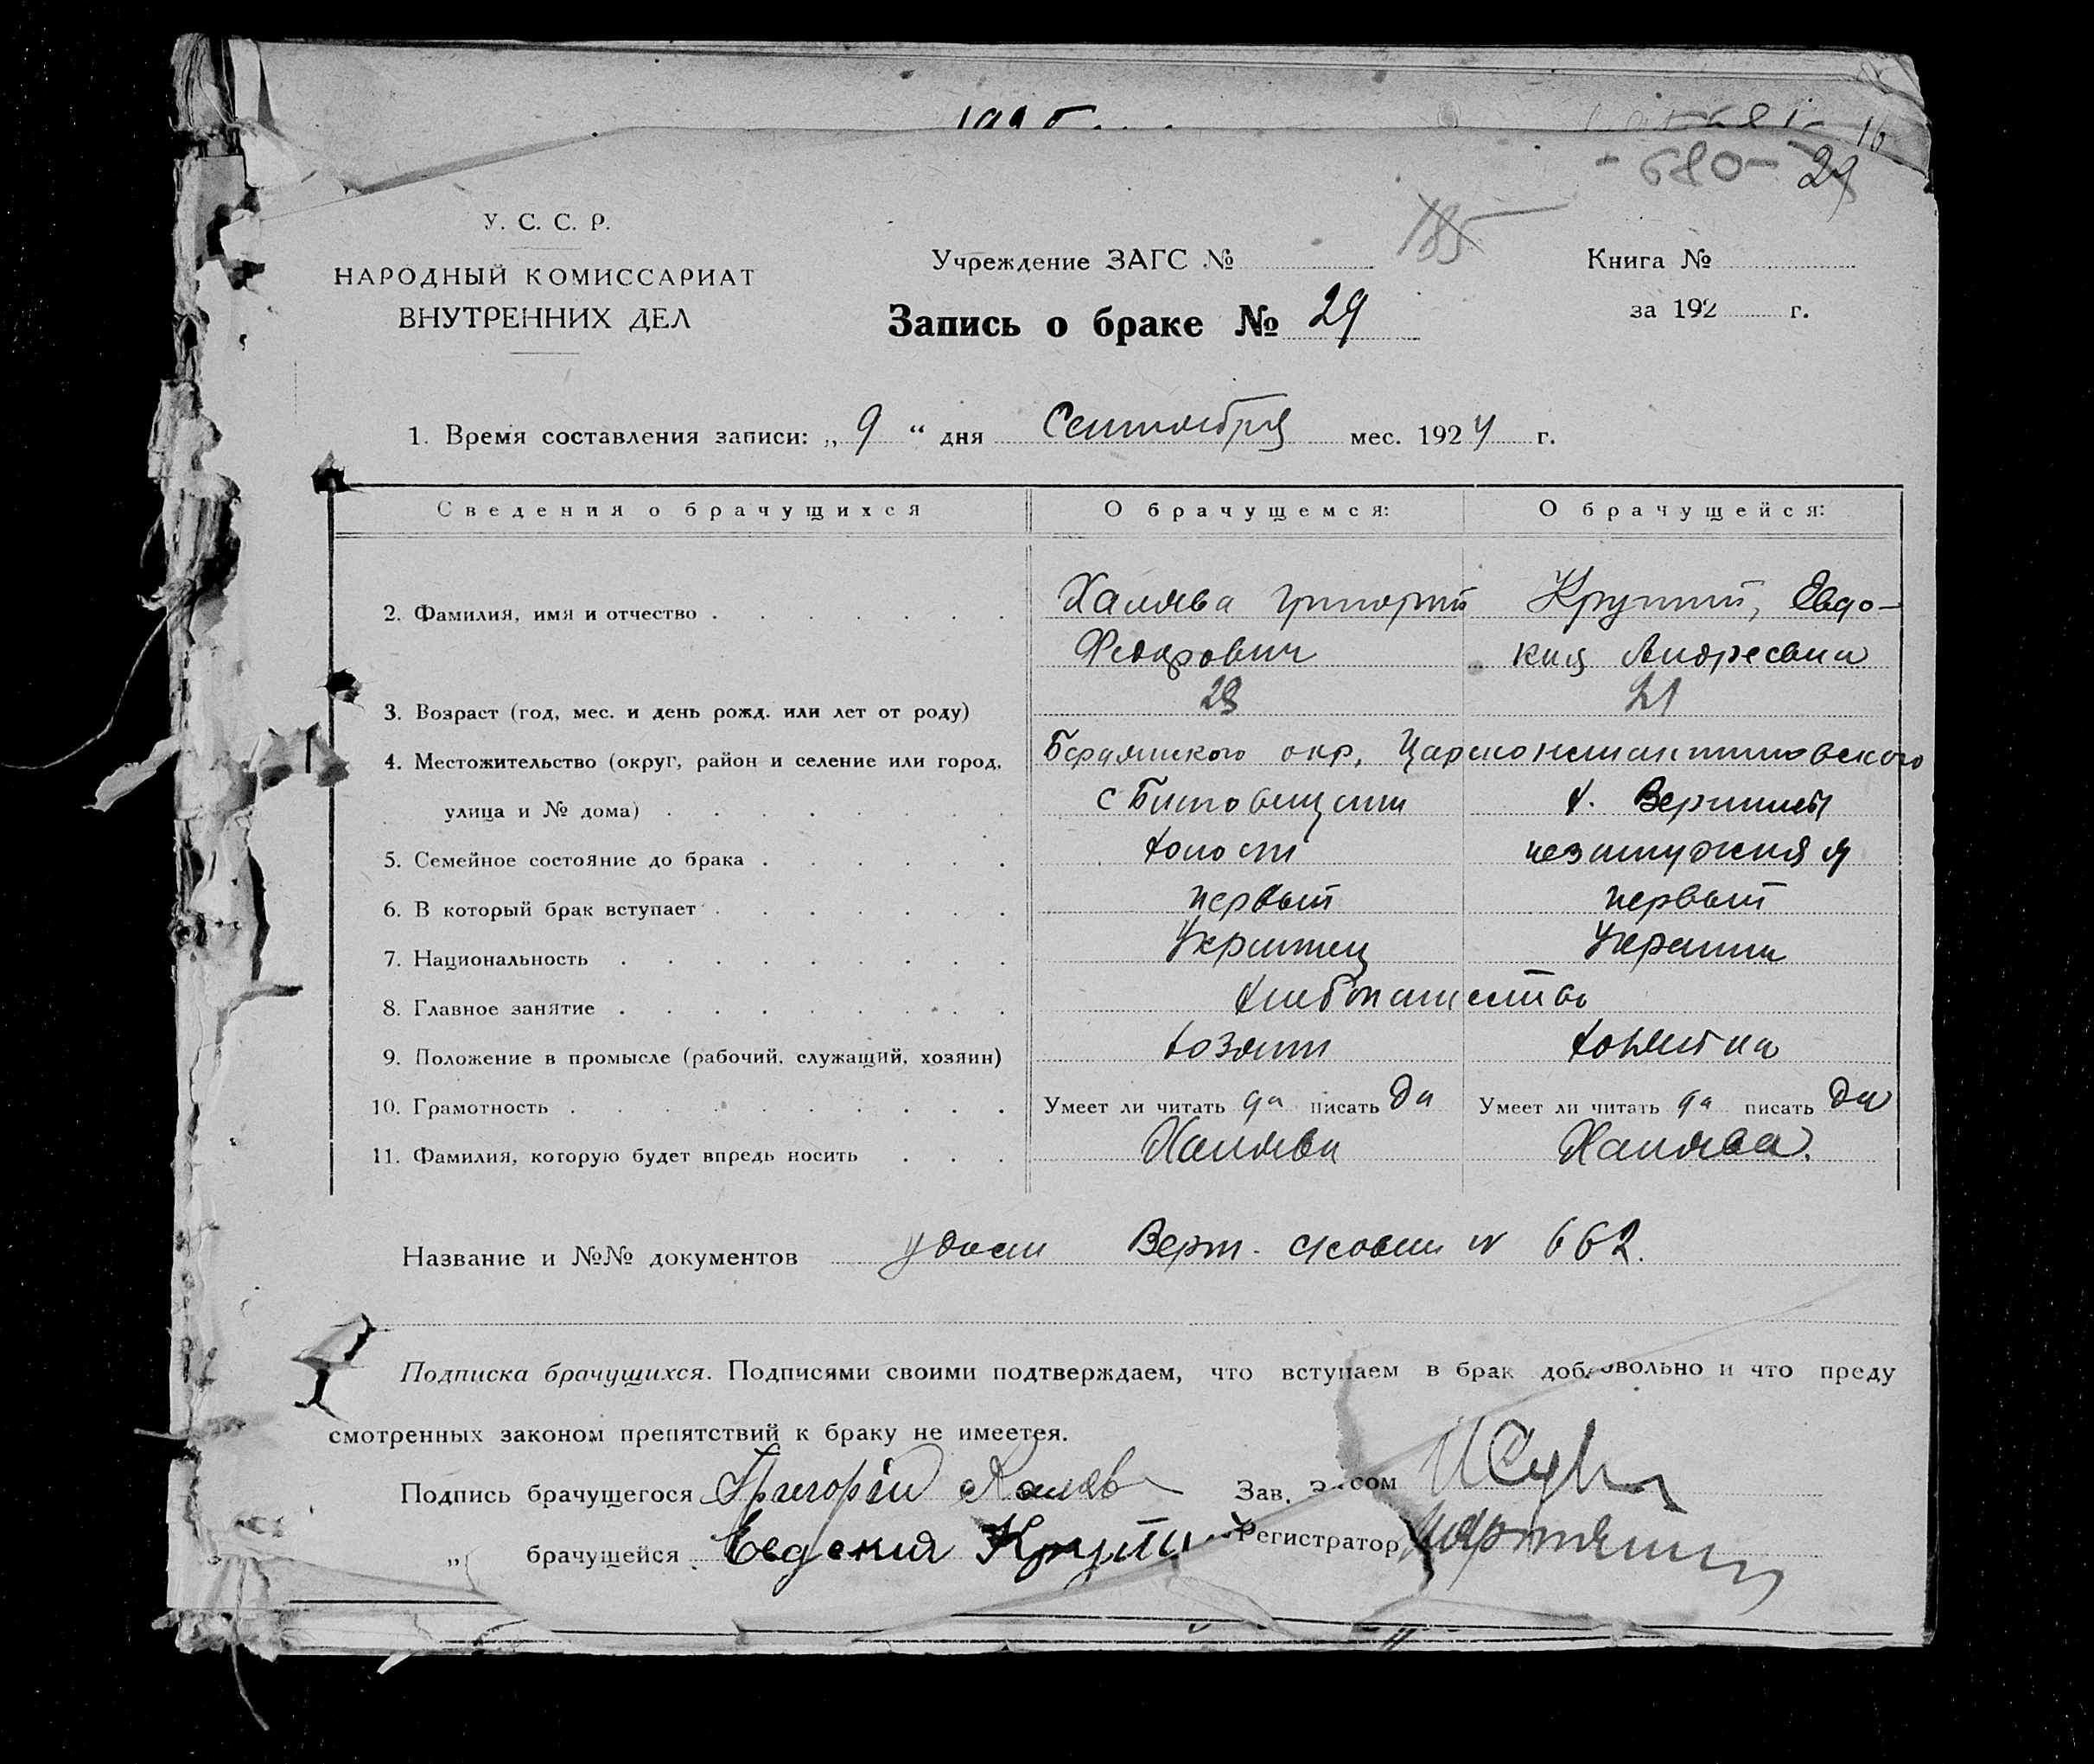 16
680- 29
185
У. С. С. Р.
НАРОДНЫЙ КОМИССАРИАТ
ВНУТРЕННИХ ДЕЛ
Учреждение ЗАГС №
Книга №
Запись о браке № 29
за 192 г.
1. Время составления записи: „ 9 “ дня Сентября мес. 1924 г.
Сведения о брачущихся О брачущемся: О брачущейся:
2. Фамилия, имя и отчество Халява Григорий Крутий, Евдо-
Федорович кия Андреевна
3. Возраст (год, мес. и день рожд. или лет от роду) 23 21
4. Местожительство (округ, район и селение или город, Бердянского окр. Царконстантиновского
улица и № дома) с х. Вершина
5. Семейное состояние до брака холост незамужняя
6. В который брак вступает первый первый
7. Национальность Украинец Украинка
8. Главное занятие хлебопашество
9. Положение в промысле (рабочий, служащий, хозяин) хозяин хозяйка
10. Грамотность Умеет ли читать да писать Да Умеет ли читать да писать Да
11. Фамилия, которую будет впредь носить Халява Халява.
Название и №№ документов удост № 662.
Подписка брачущихся. Подписями своими подтверждаем, что вступаем в брак добровольно и что преду
смотренных законом препятствий к браку не имеется.
Подпись брачущегося Григорій Халява Зав. сом
„ брачущейся Евдокия Крути Регистратор